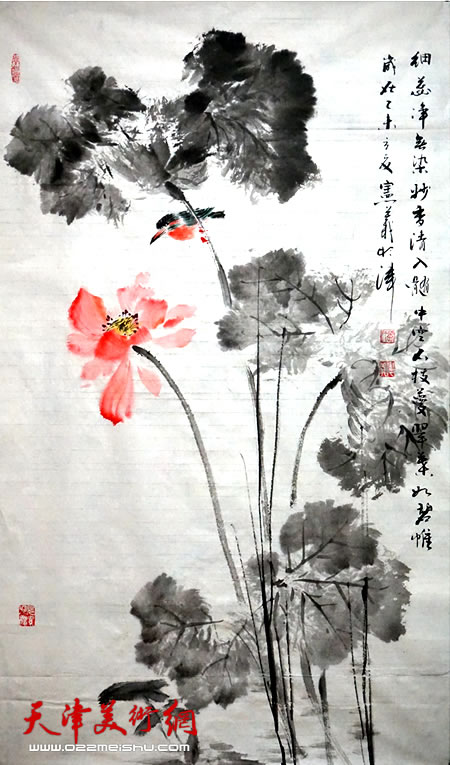 细蕊净无染妙香清入髓中空不枝蔓翠叶如碧帷
岁在乙未之夏宪义於津
天津美術網
www.022meishu.com